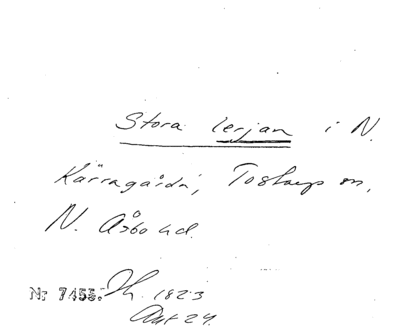 Stora lerjan i N.
Kärragården, Tostarps sn,
N. Åsbo hd.
Nr 7455. 1823